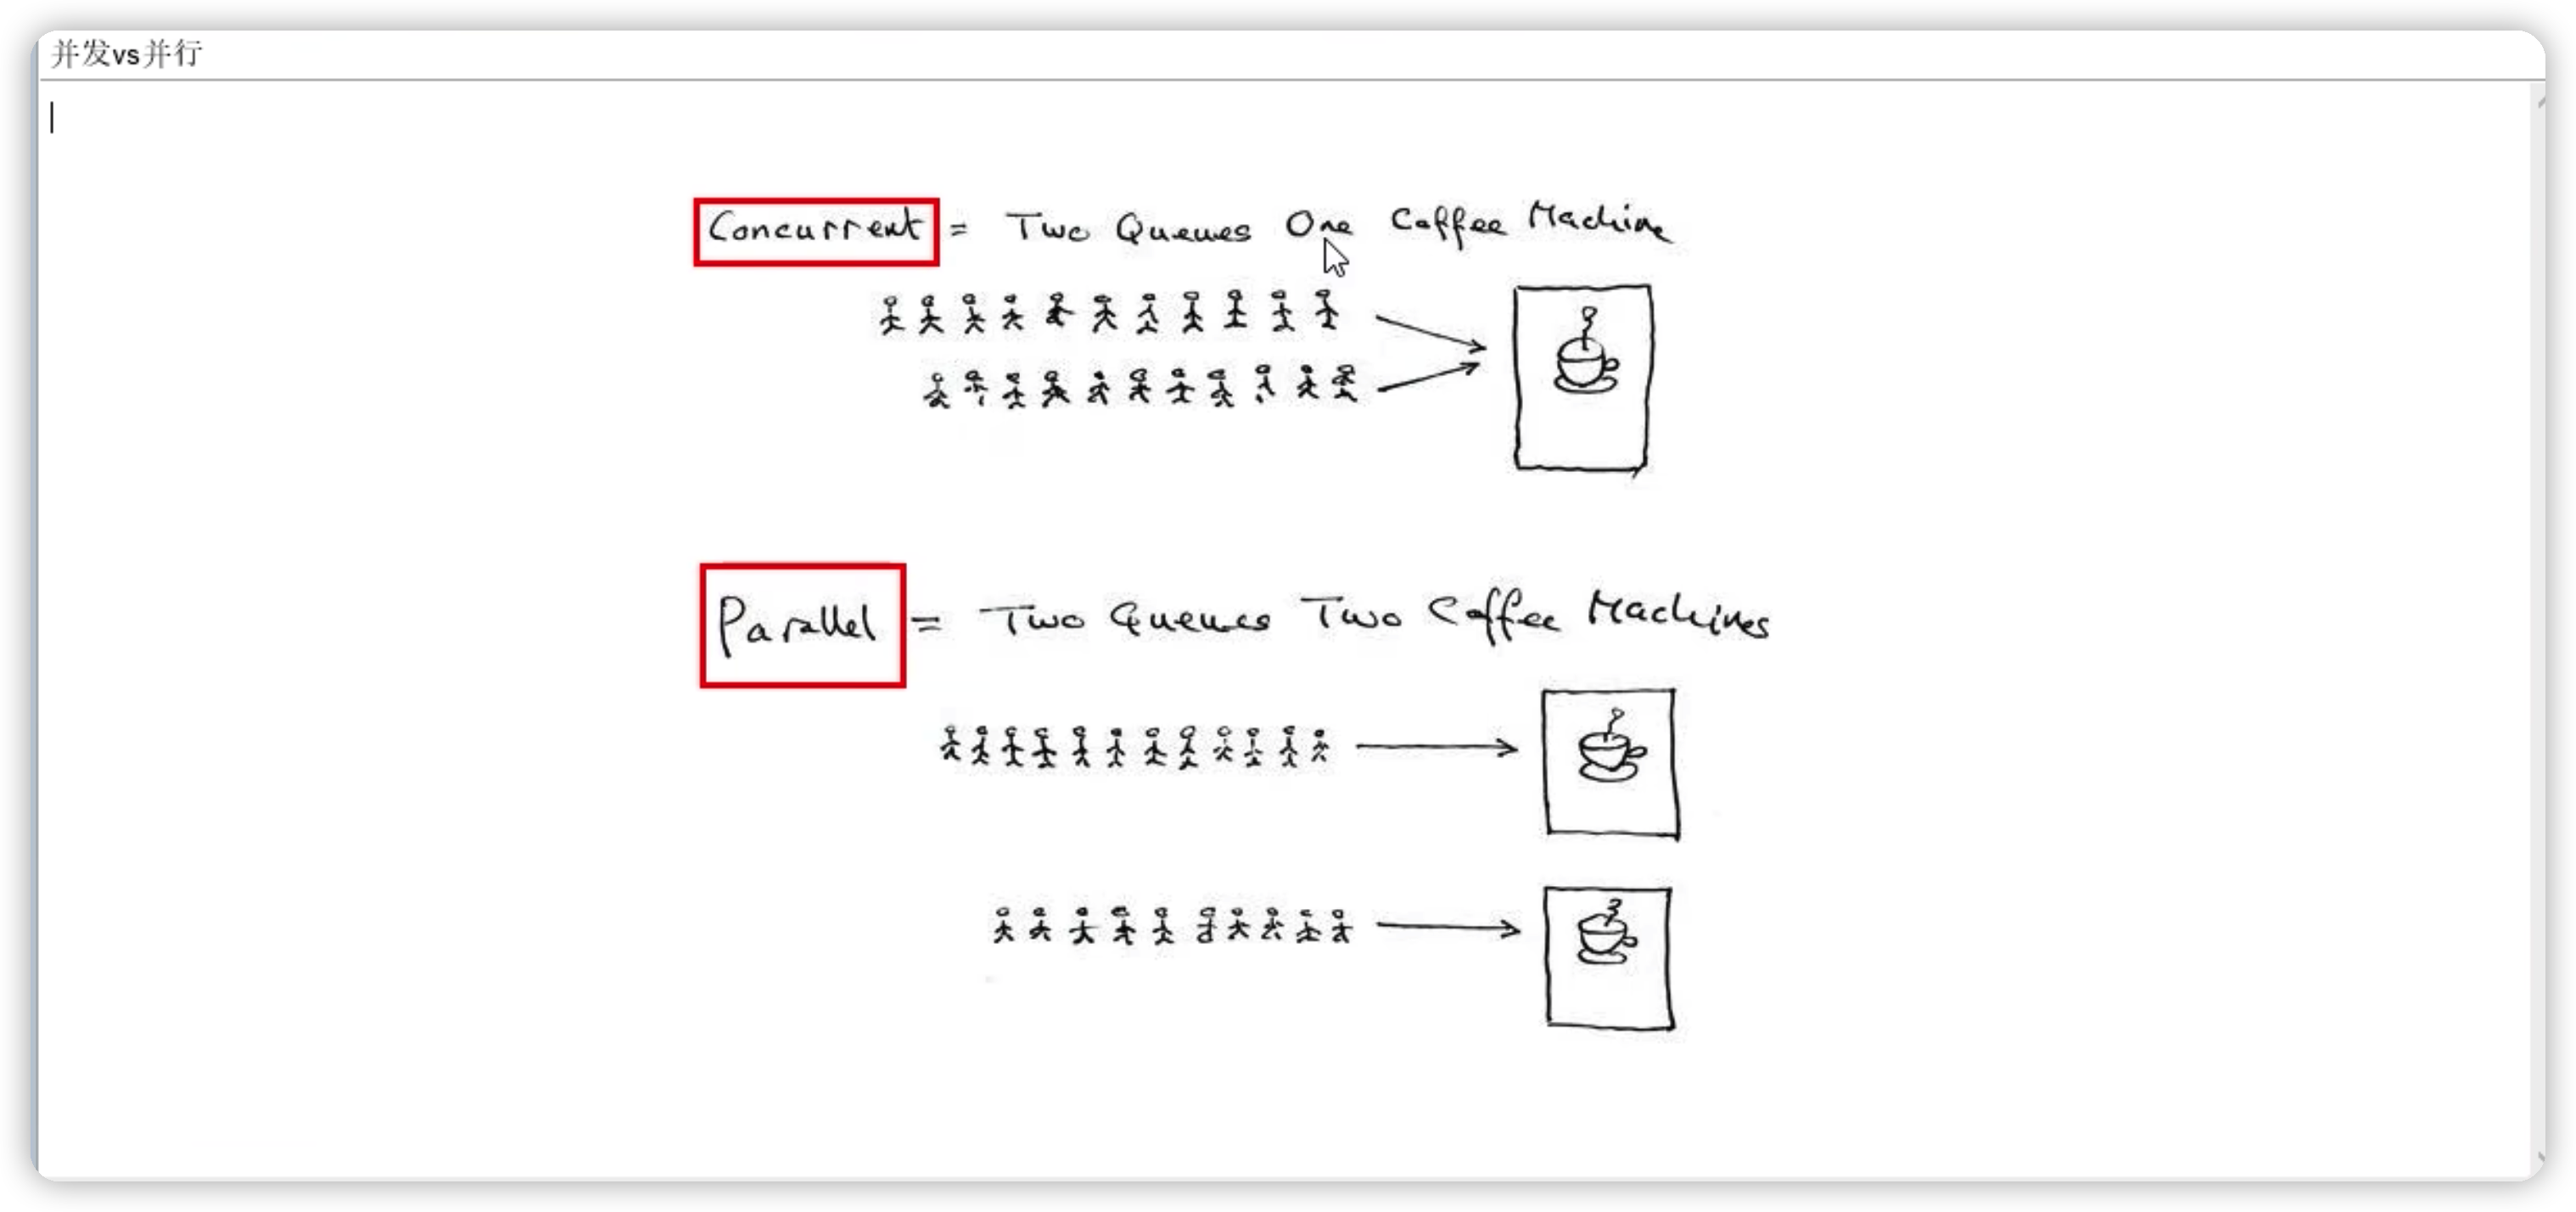 并发vs并行
Concurrent = Two Queues One Coffee Machine
Parallel = Two Queues Two Coffee Machines